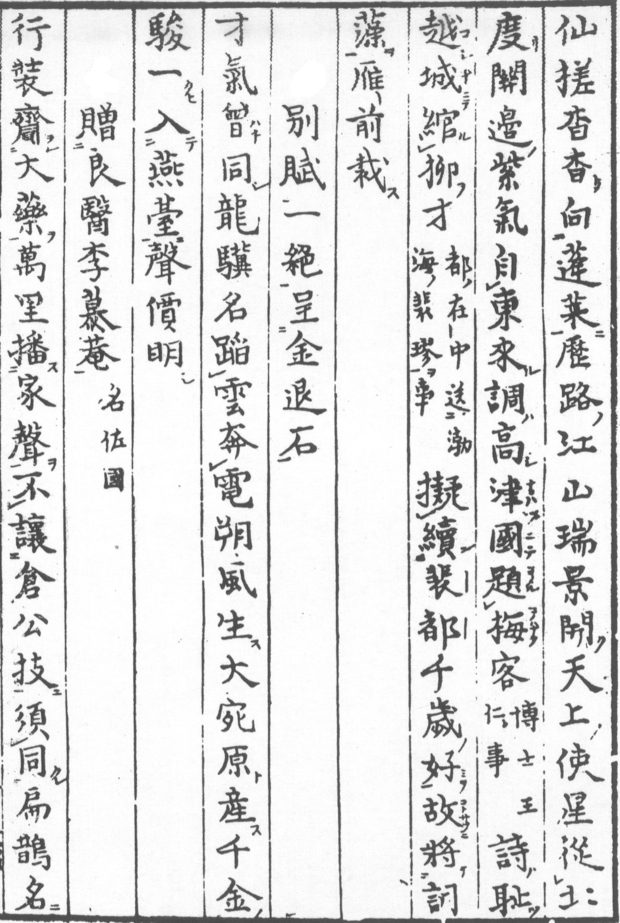 仙槎杳杳向蓬萊歷路江山瑞景開天上使星從北
度關邊紫氣自東來調高津國題梅客博士王仁事詩耻
越城綰柳才都在中送渤海裴璆事擬續裴都千歲好故將詞
藻雁前裁
別賦一絕呈金退石
才氣曾同龍驥名蹈雲奔電朔風生大宛原產千金
駿一入燕臺聲價明
贈良醫李慕菴名佐國
行裝齎大藥萬里播家聲不讓倉公技須同扁鵲名